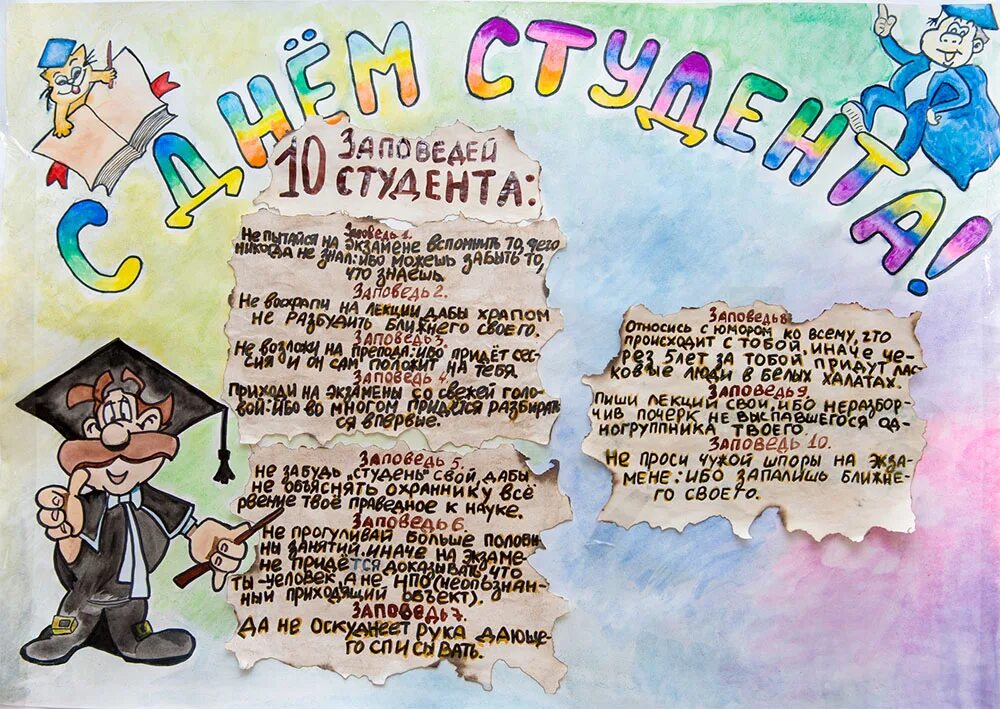 С ДНЁМ СТУДЕНТА!
10 ЗАПОВЕДЕЙ
СТУДЕНТА:
Заповедь 1.
Не пытайся на экзамене вспомнить то, чего
никогда не знал: ибо можешь забыть то,
что знаешь.
Заповедь 2.
Не восхрапи на лекции, дабы храпом
не разбудить ближнего своего.
Заповедь 3.
Не возложи на препода: ибо придёт сес-
сия и он сам положит на тебя.
Заповедь 4.
Приходи на экзамены со свежей голо-
вой: ибо во многом придётся разбират
ся впервые.
Заповедь 5.
Не забудь „студень" свой, дабы
не объяснять охраннику всё
рвение твоё праведное к науке.
Заповедь 6.
Не прогуливай больше полови
ны занятий, иначе на экзаме-
не придётся доказывать что
ты-человек, а не НПО (неопознан-
ный приходящий объект).
Заповедь 7.
Да не оскуднеет рука дающе-
го списывать.
Заповедь 8
Относись с юмором ко всему, что
происходит с тобой, иначе че-
рез 5 лет за тобой придут лас-
ковые люди в белых халатах.
Заповедь 9.
Пиши лекции свои, ибо неразбор-
чив почерк не выспавшегося од-
ногруппника твоего
Заповедь 10.
Не проси чужой шпоры на экза-
мене: ибо запалишь ближне-
го своего.